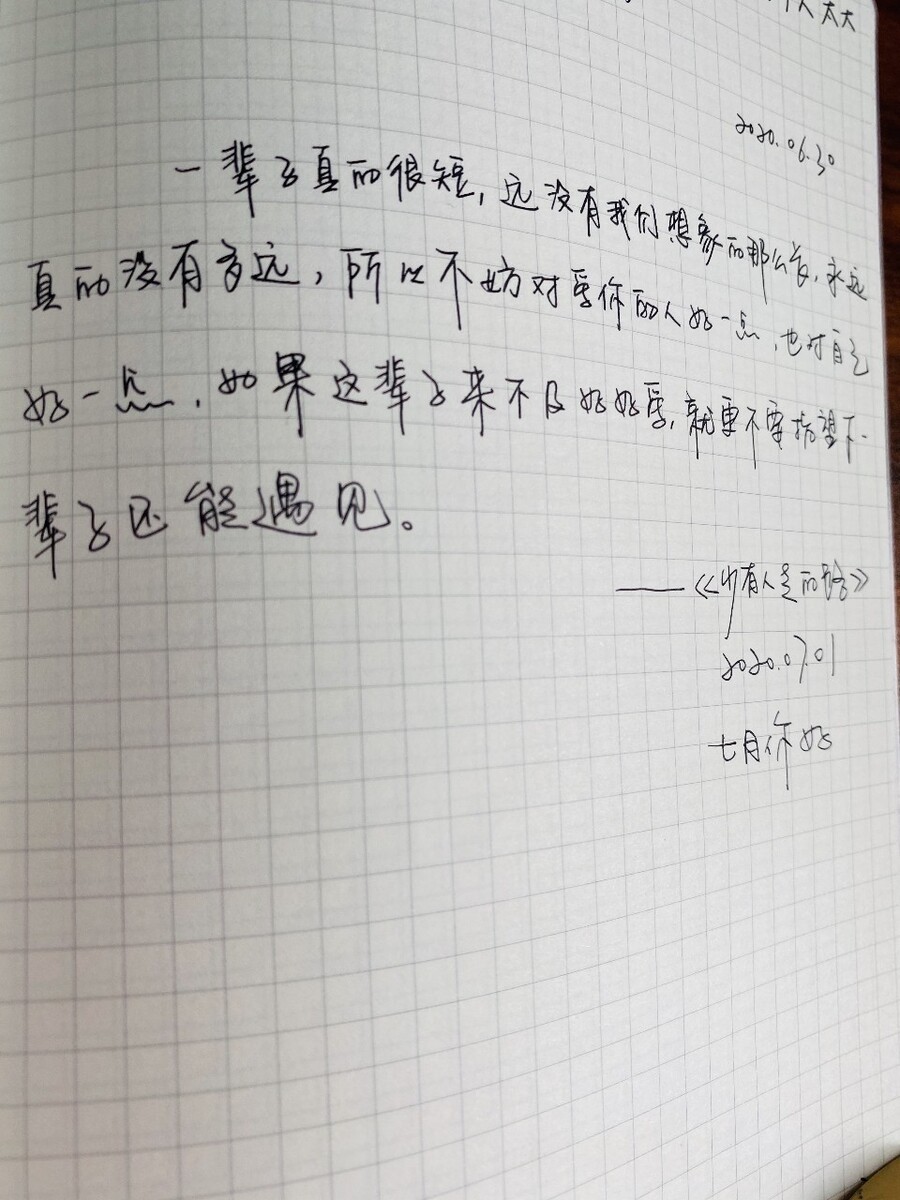 个人太大
2020.06.30
一辈子真的很短,远没有我们想象的那么长,永远
真的没有多远,所以不妨对爱你的人好一点,也对自己
好一点,如果这辈子来不及好好爱,就更不要指望下一
辈子还能遇见。
——《少有人走的路》
2020.07.01
七月你好